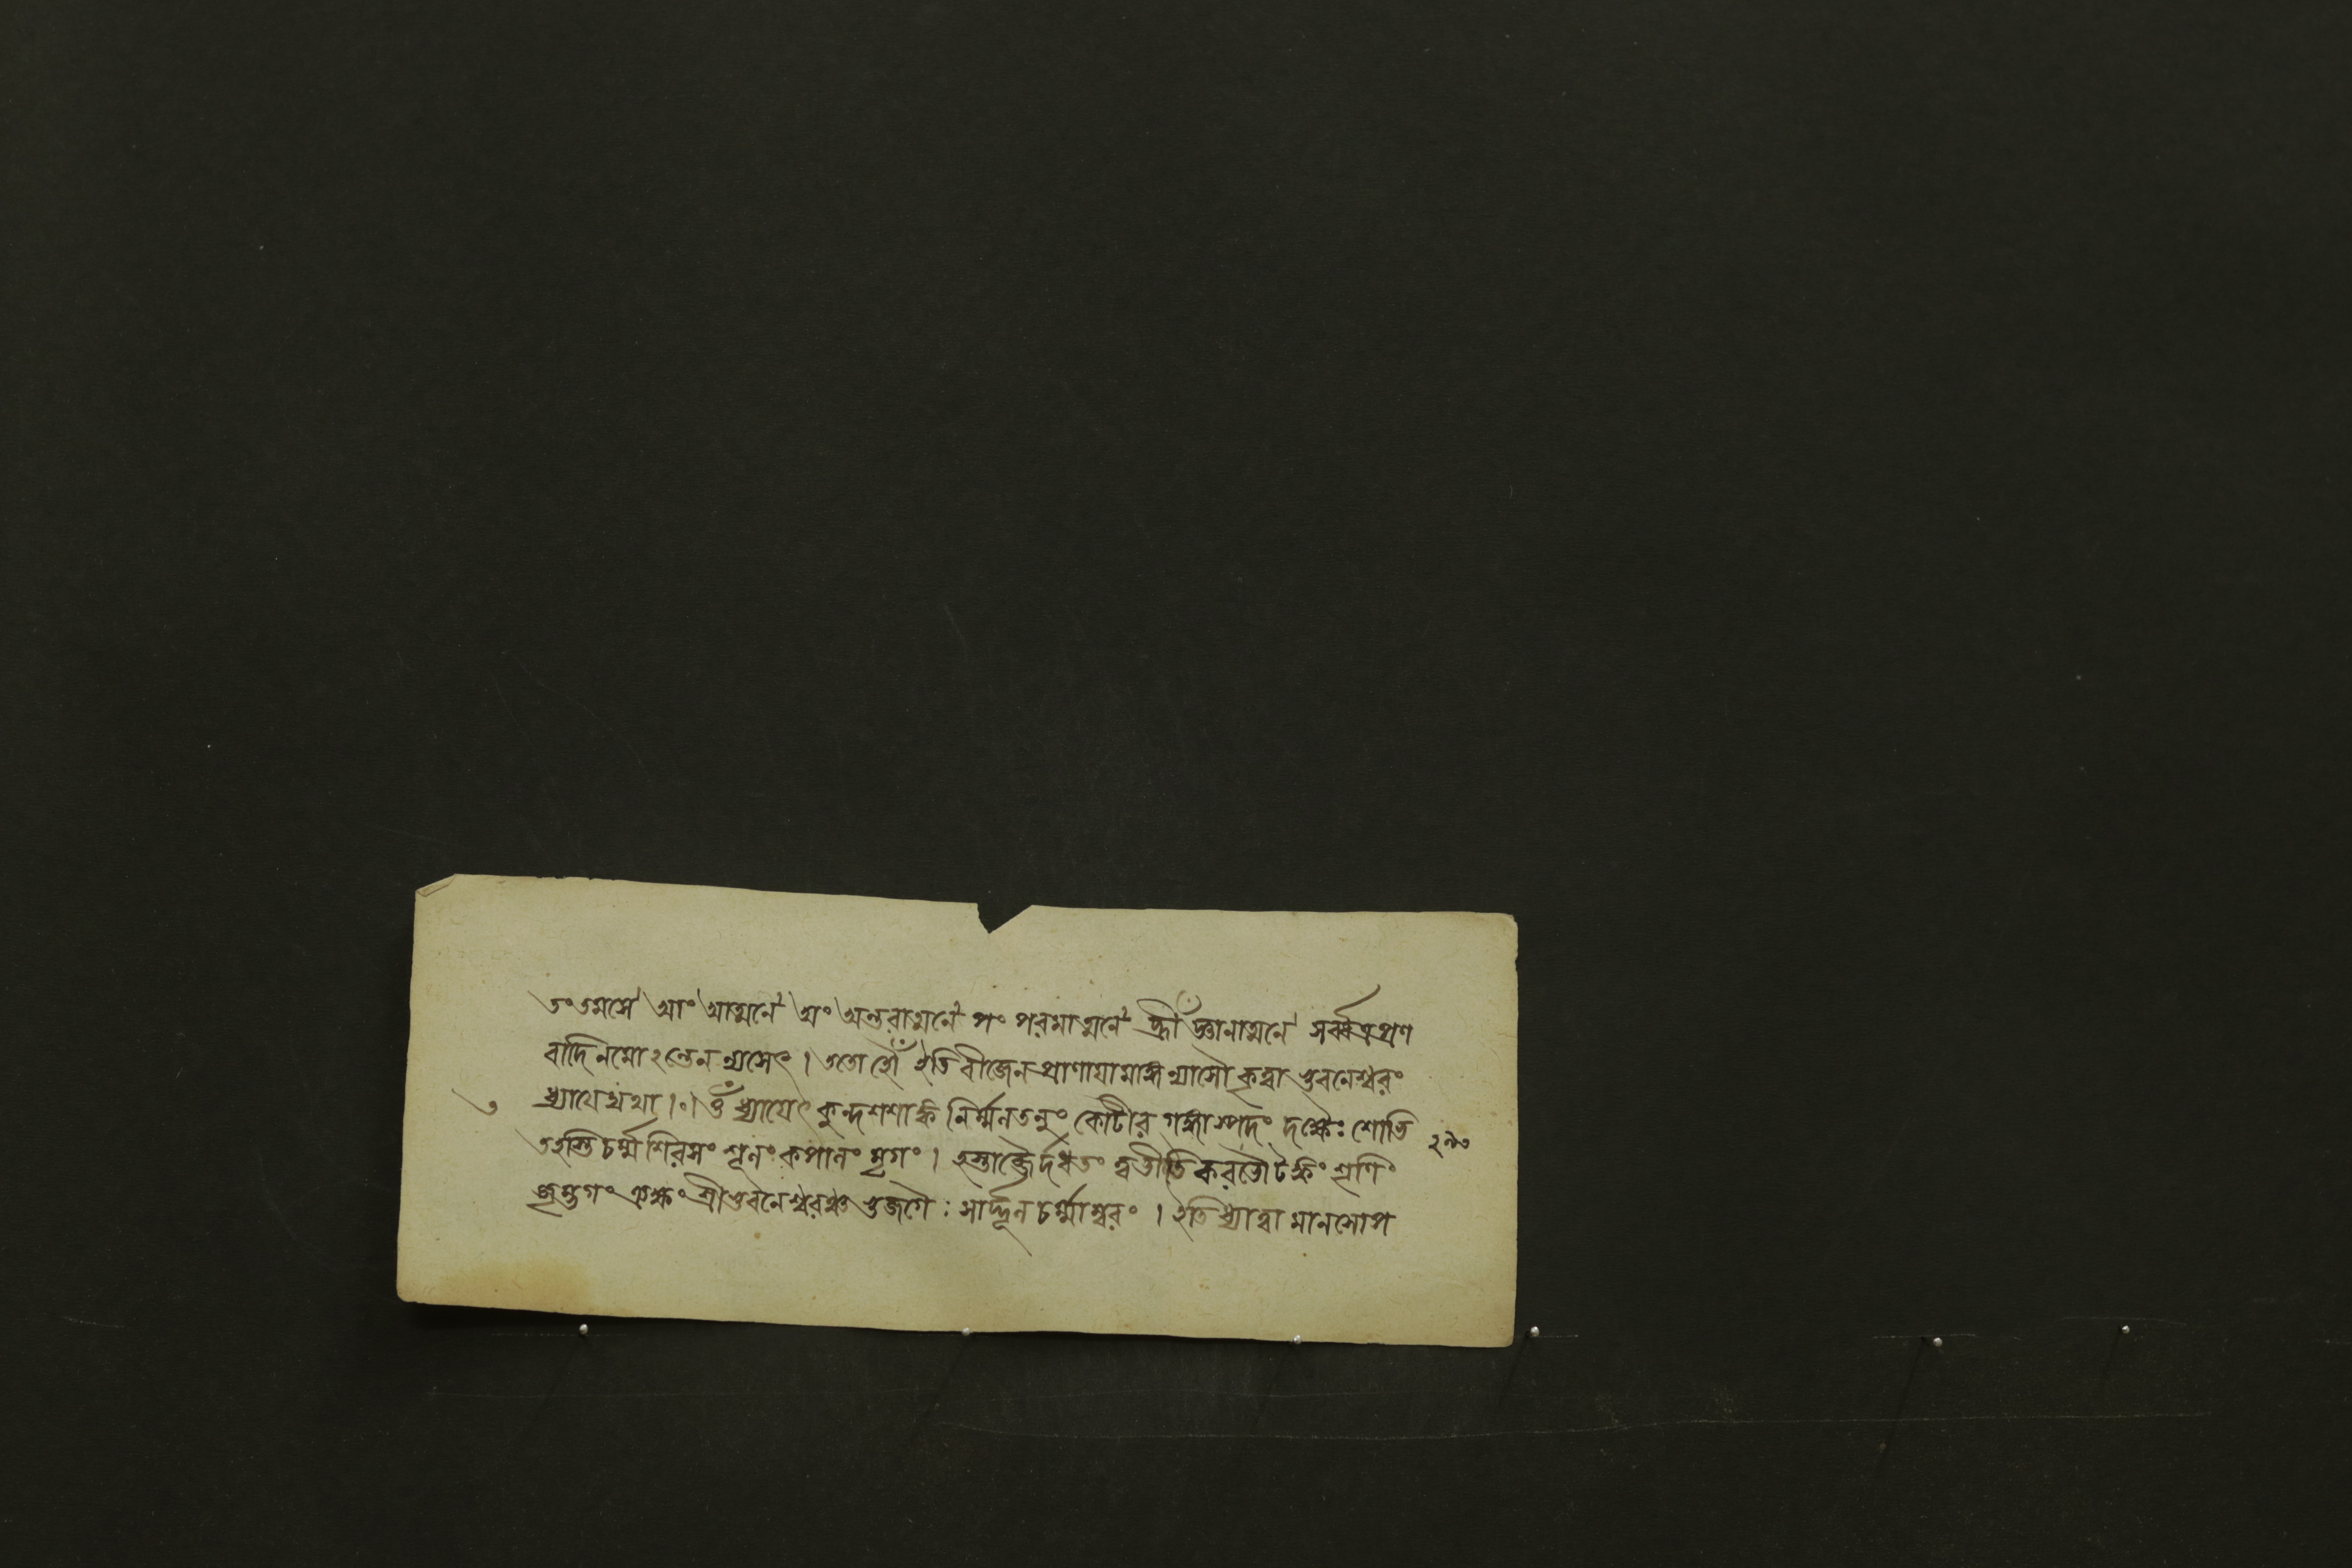 তং তমসে আং আত্মনে অং অন্তরাত্মনে পং পরমাত্মনে হ্রীঁ জ্ঞানাত্মনে সর্ব্বত্র প্রণ
বাদি নমোঽন্তেন ন্যসেৎ। ততো হৌঁ ইতি বীজেন প্রাণায়ামাঙ্গন্যাসৌ কৃত্বা ভুবনেশ্বরং
ধ্যায়েদ্যথা।০।ওঁ ধ্যায়েৎ কুন্দশশাঙ্ক নির্ম্মলতনুং কোটীর গঙ্গাস্পদং শোভি
ত হস্তি চর্ম্ম শিরসং শূলং কপালং মৃগং। হস্তাব্জৈর্দধতং
শ্রীভুবনেশ্বরঞ্চ ভুজগৈঃ শার্দ্দূল চর্ম্মাম্বরং। ইতি ধ্যাত্বা মানসোপ